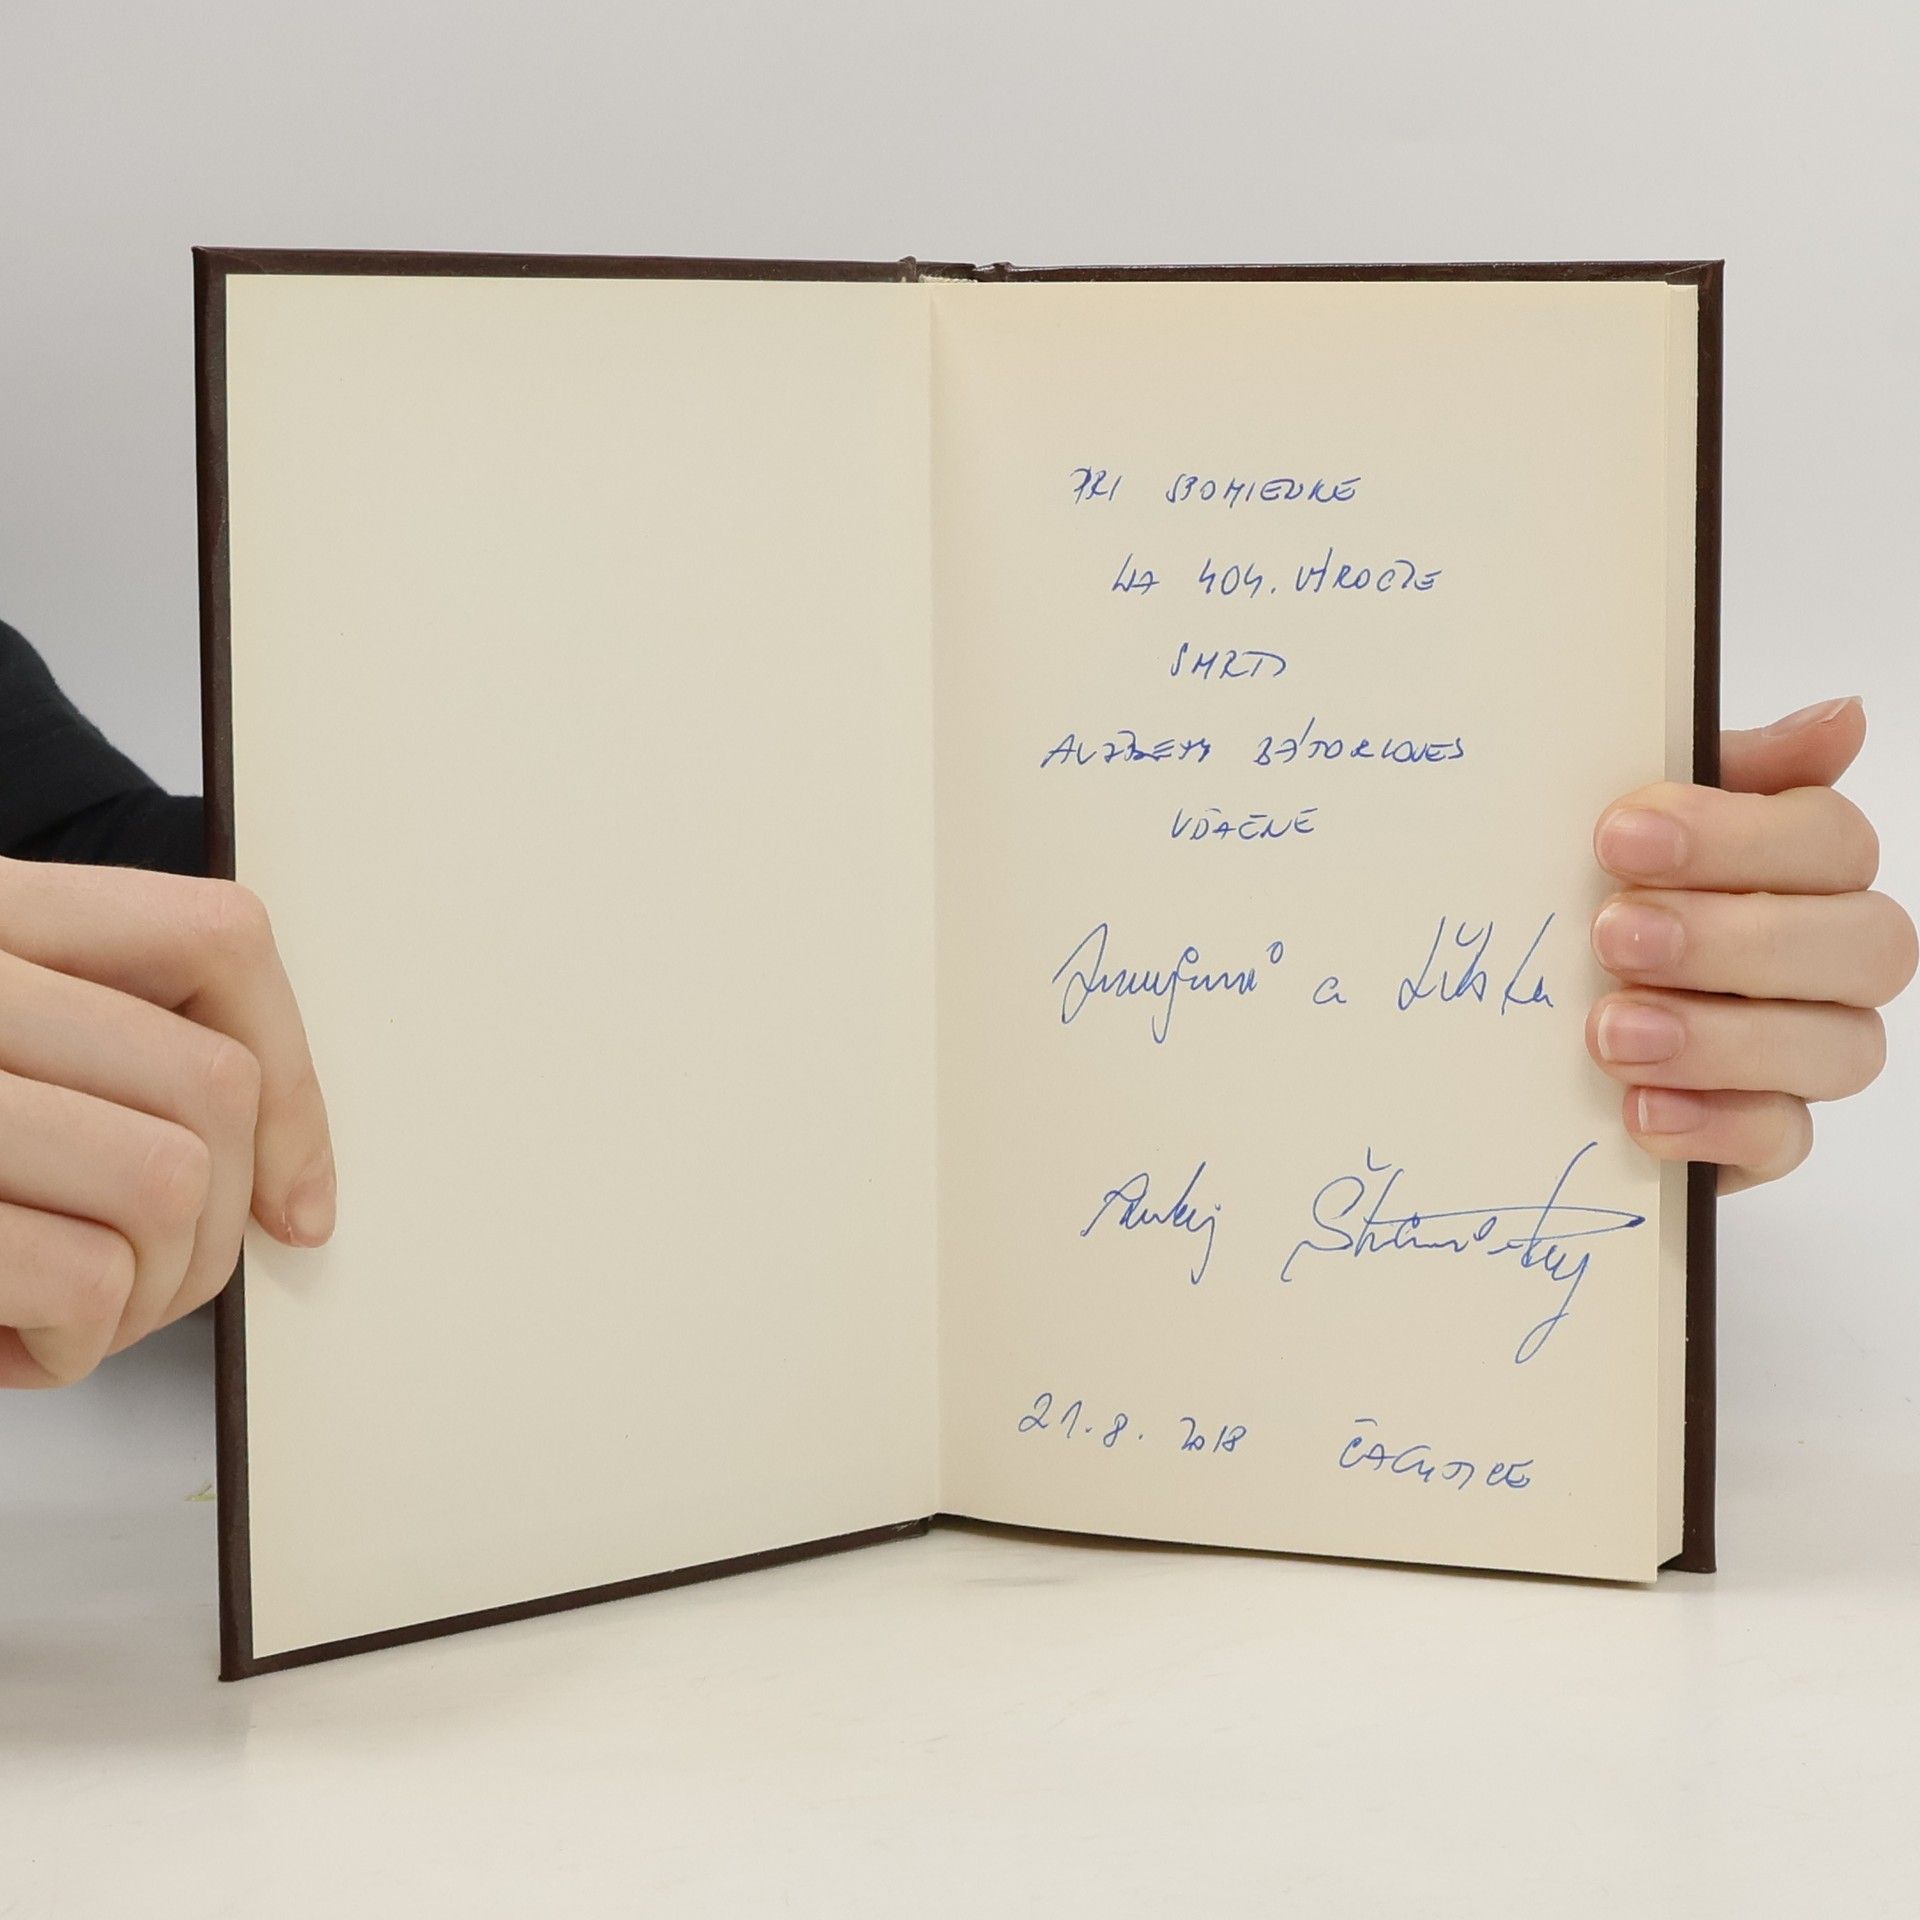 PRI SPOMIENKE
NA 404. VÝROČIE
SMRTI
ALŽBETY BÁTORIOVEJ
VĎAČNE
a
Andrej Štiavnický
21.8. 2018 ČACHTICE